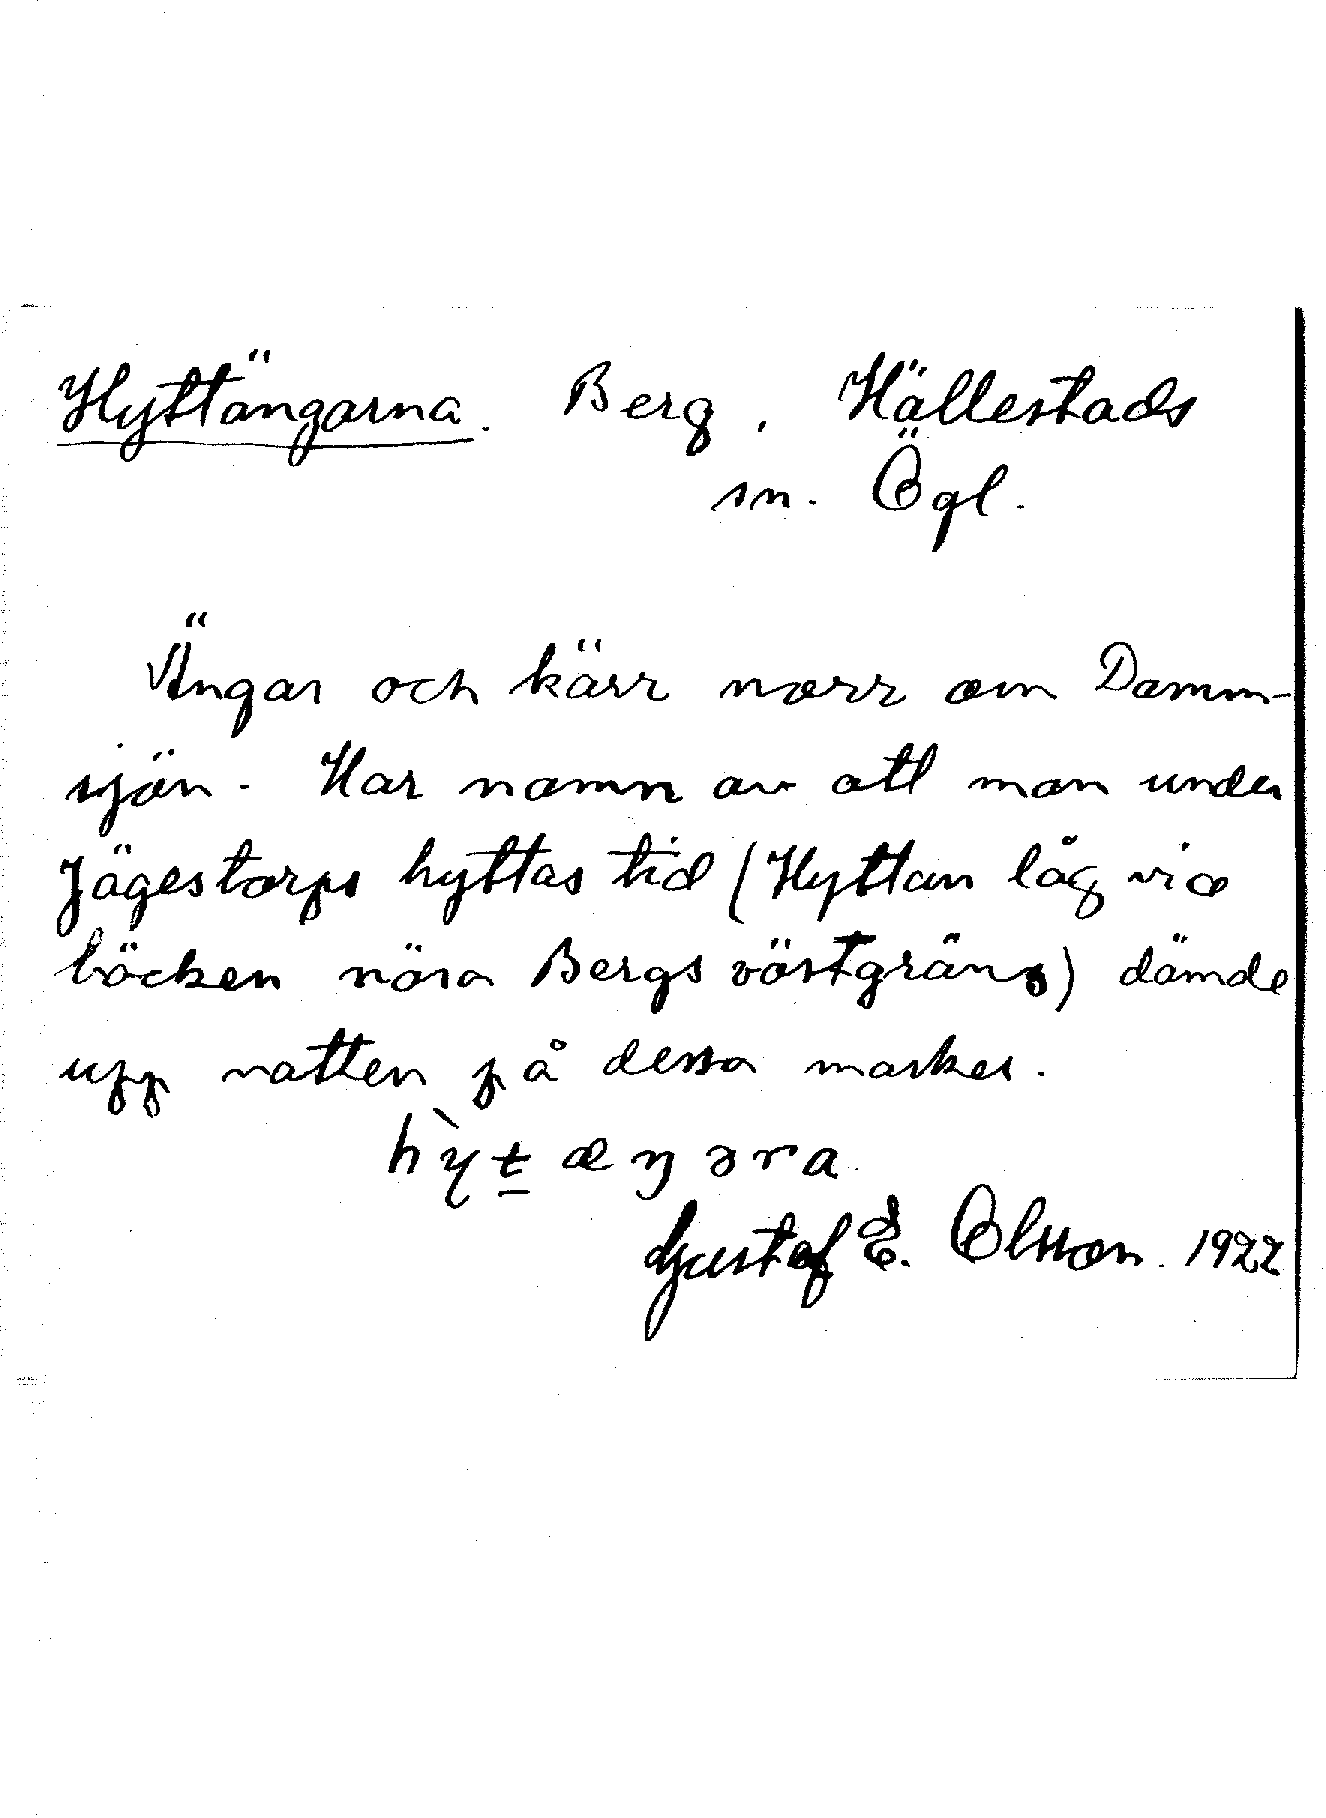 Hyttängarna. Berg, Hällestads
sn. Ögl.
Ängar och kärr norr om Damm-
sjön. Har namn av att man under
Jägestorps hyttas tid (Hyttan låg vid
bäcken nära Bergs västgräns) dämde
upp vatten på dessa marker.
hỳt̲æŋəra
Gustaf E. Olsson. 1922